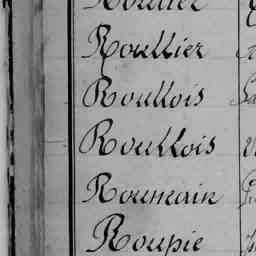 Roullier
Roullois
Roullois
Roumain
Roupie